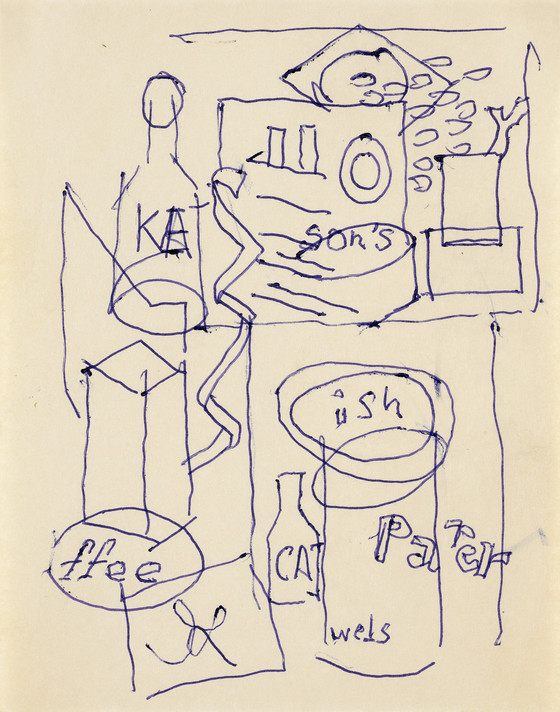 KA
son's
ish
Paper
ffee
CAT
wels